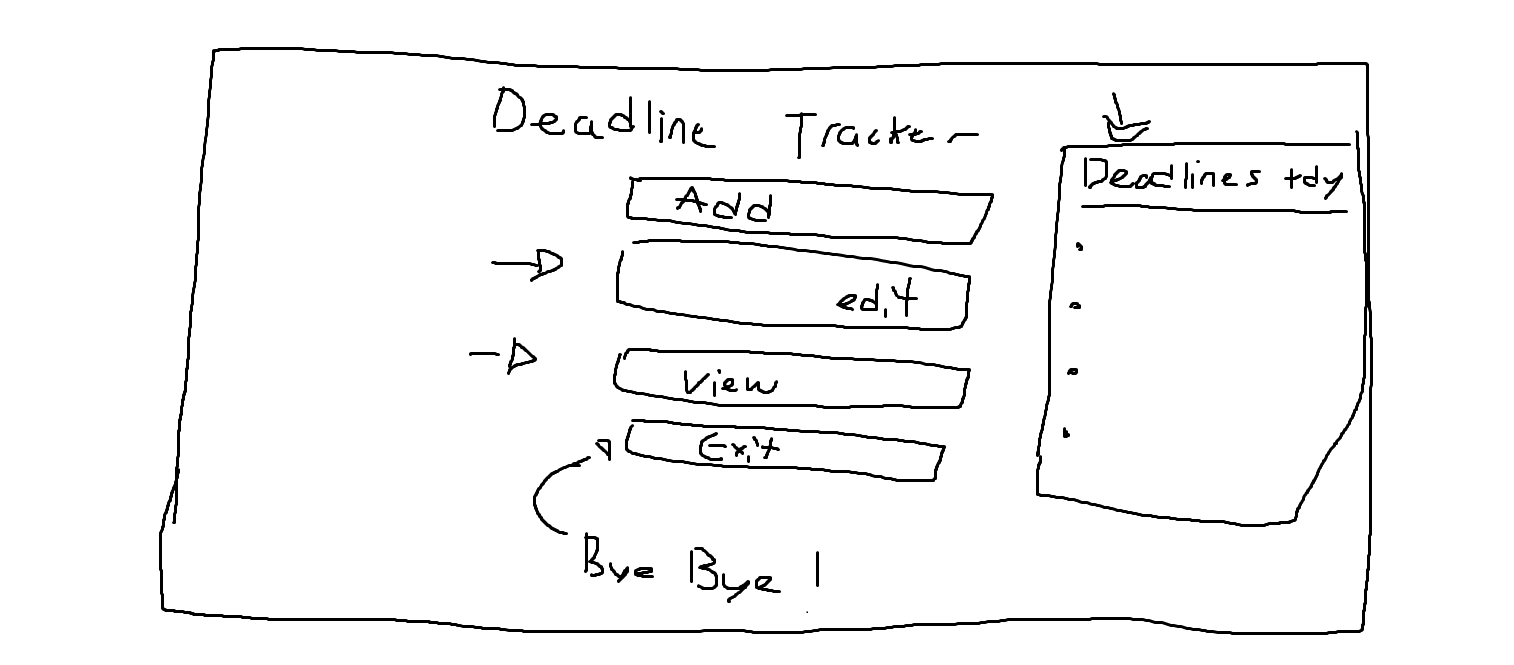 Deadline Tracker
Add
edit
View
Exit
Bye Bye !
Deadlines tdy